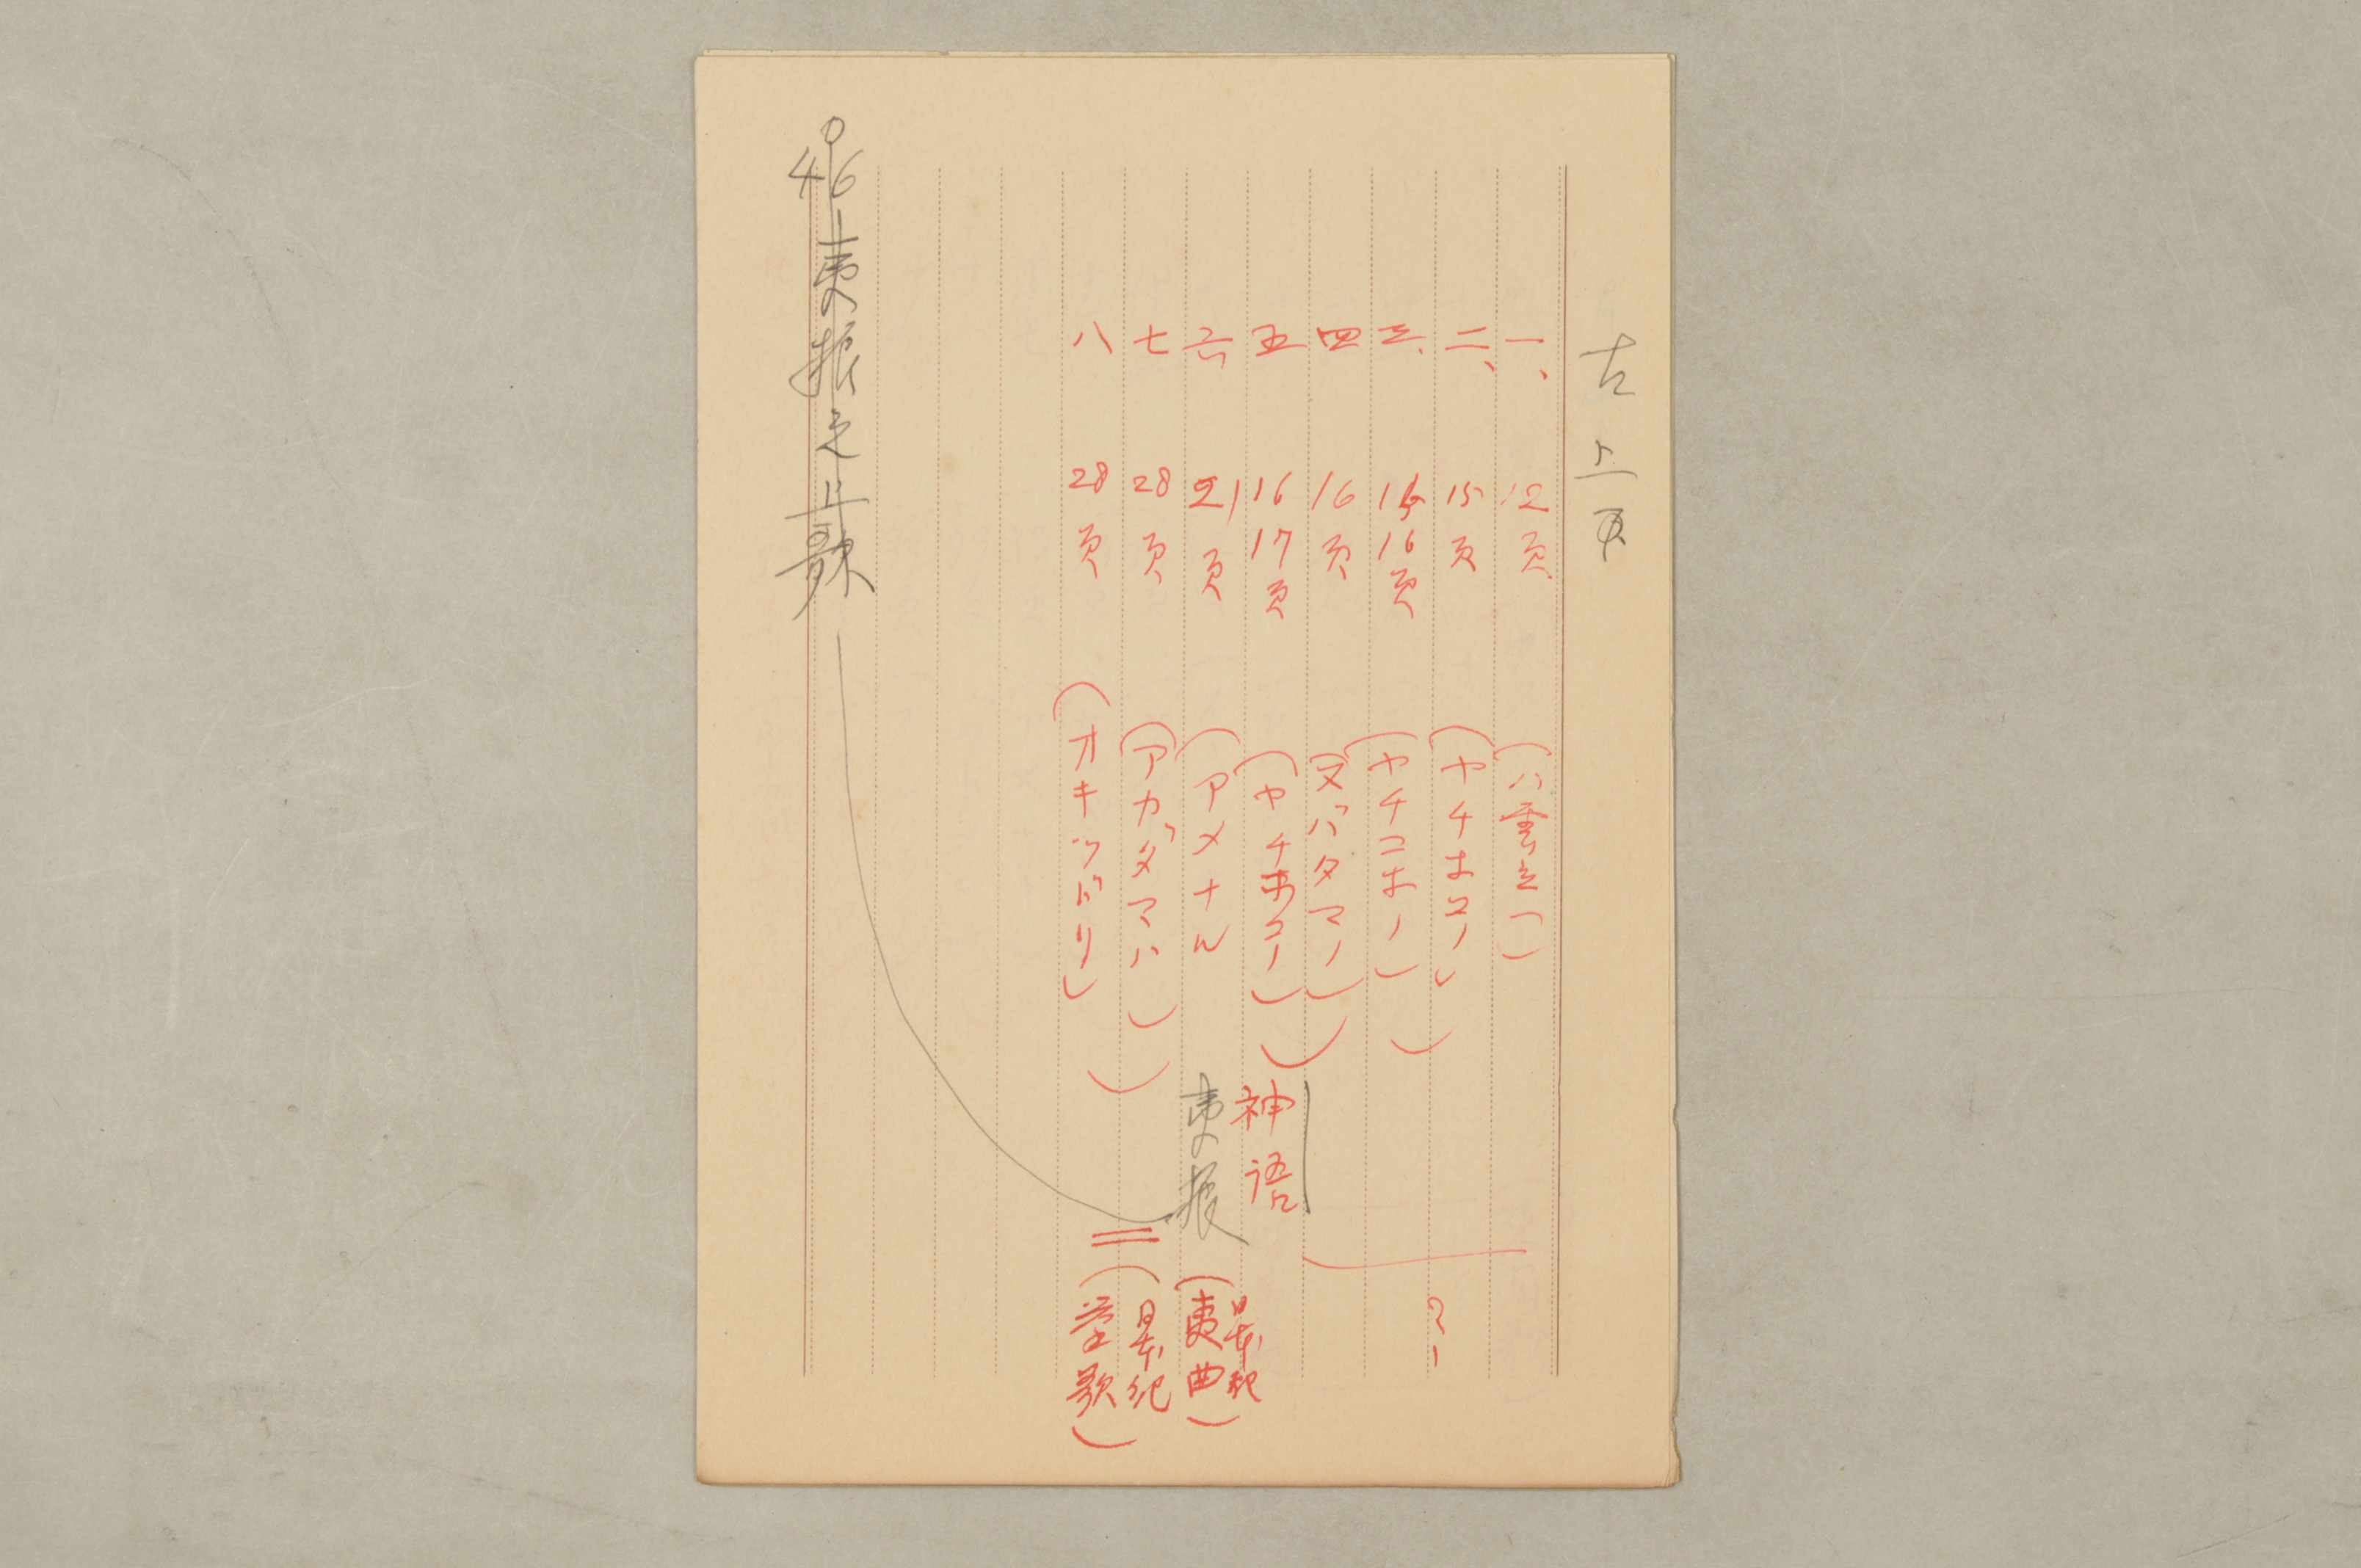 古上頁
一、 12頁 (八雲立つ)
二、 15頁 (ヤチホコノ)
三、 16頁 (ヤチコホノ)
四 16頁 (ヌバタマノ)
五 16 17頁 (ヤチホコノ)
神語
?
六 21頁 (アメナル
夷振
(日本紀
夷曲)
七 28頁 (アカダマハ)
八 28頁 (オキツドリ)
=
(日本紀
挙歌)
46 夷振之片歌